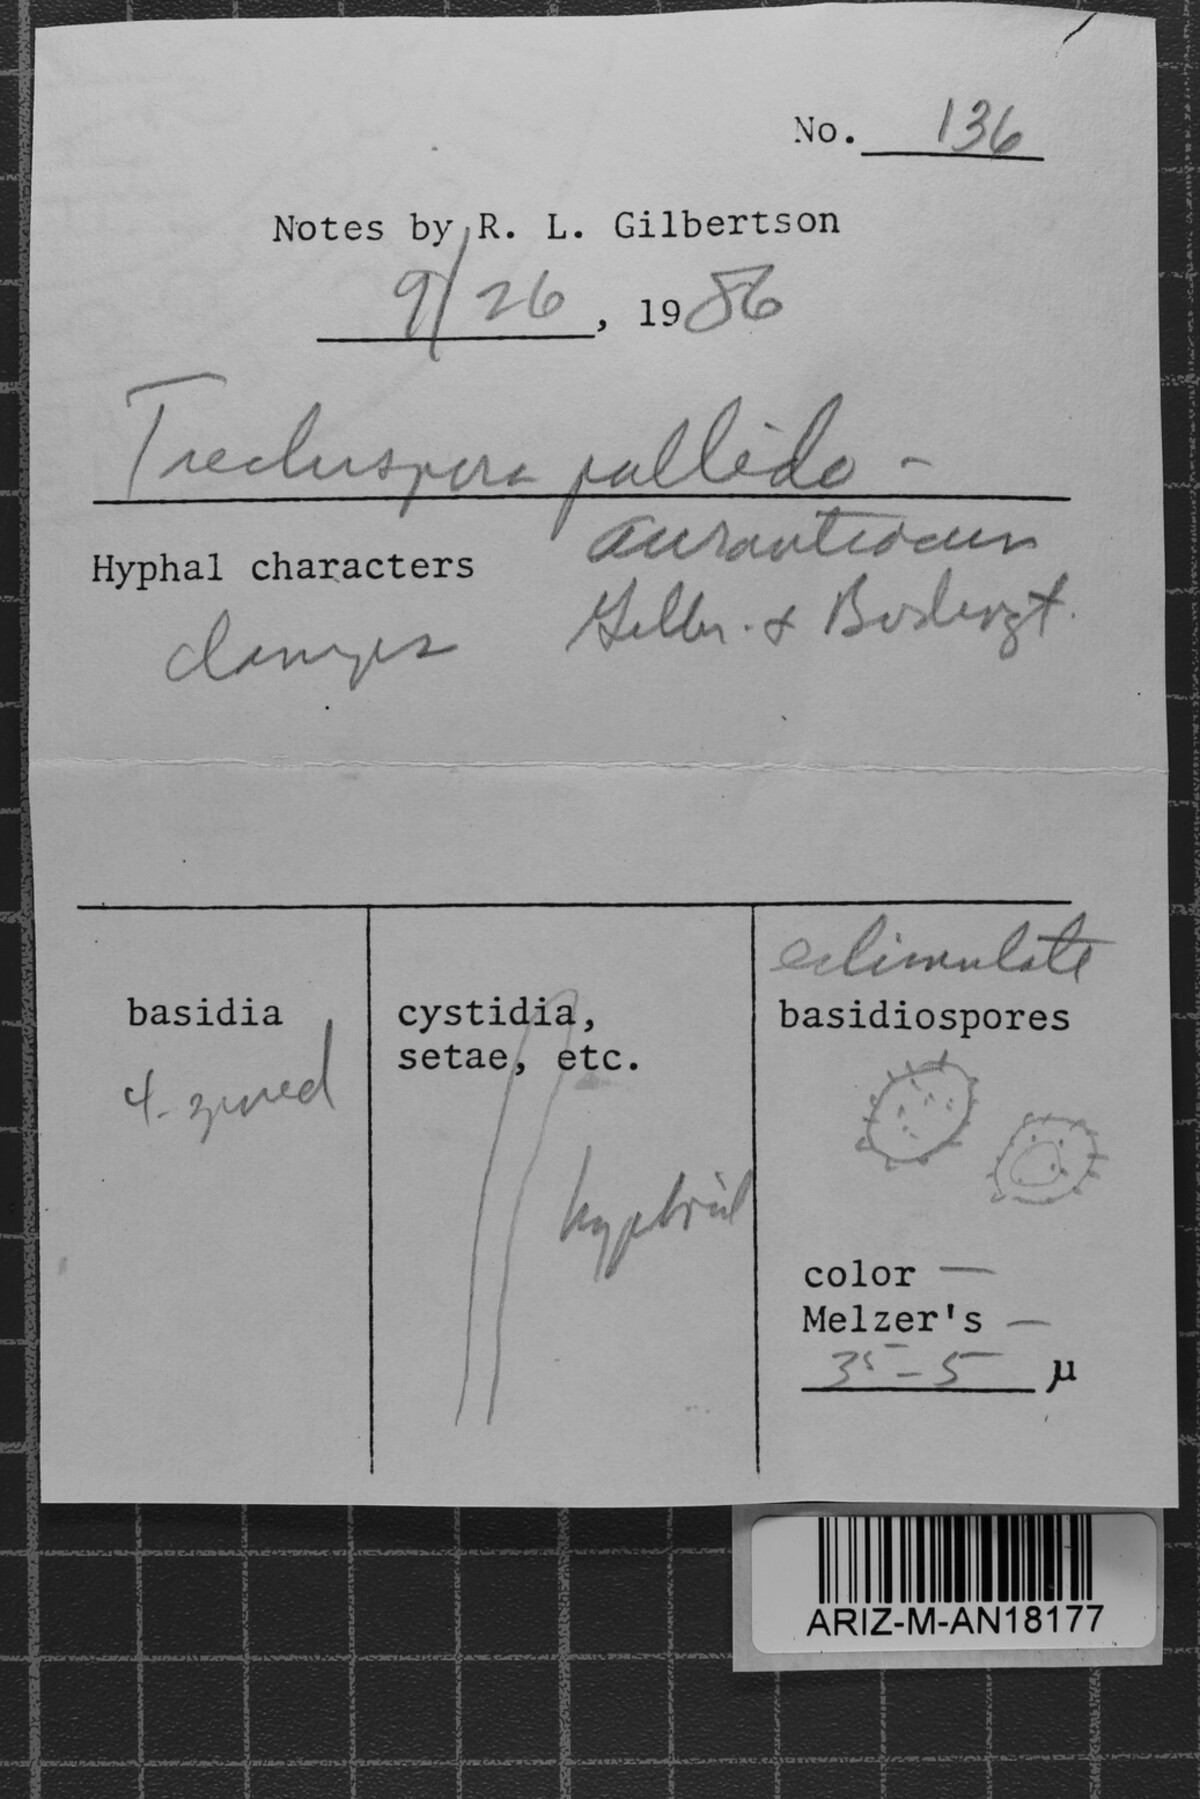 No. 136
Notes by R. L. Gilbertson
9/26, 1986
Trechispora pallido-
aurantiacum
Hyphal characters
Gilbn. & Budingt.
clamps
echinulate
basidia
4-spored
cystidia,
setae, etc.
hyphoid
basidiospores
color —
Melzer's —
35 - 5 µ
ARIZ-M-AN18177